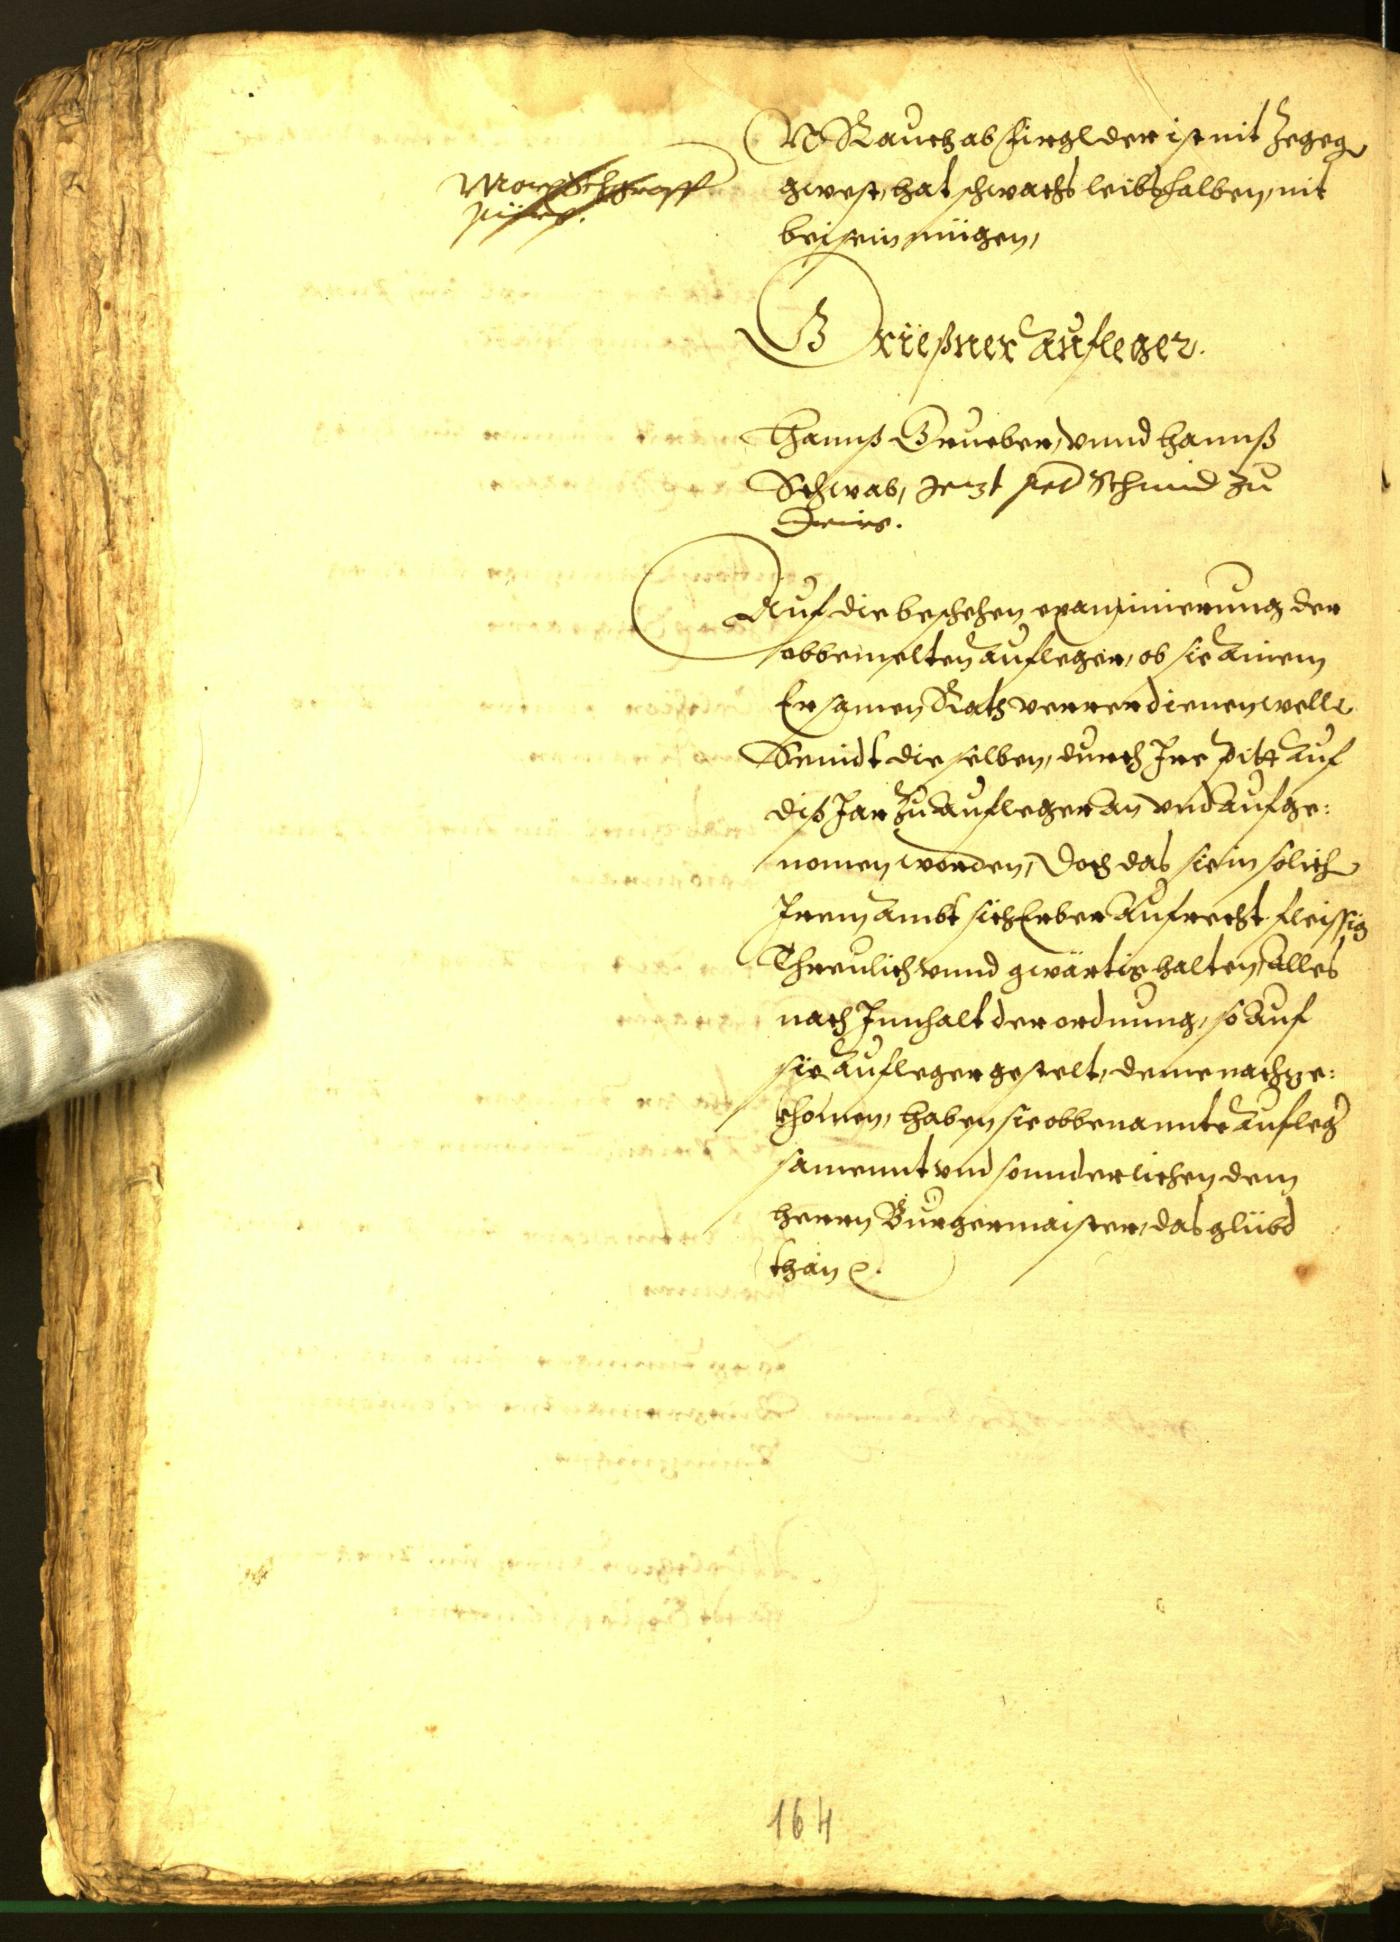 N Rauch ab Hirgl der ist nit zegeg
gwest, hat schwachs leibs halben, nit
bei sein mügen,
Griesner Aufleger.
Hanns Grueber, vnnd Hanns
Schwab, Jetzt Schmid zu
Auf die beschehen examinierung der
obbemelten Aufleger, ob sie ainem
Ersamen Rath verrer dienen welle
Seindt die selben, durch Ire pitt auf
diß Jar zu Aufleger an vnd aufge:
nomen worden, Doch das sie in solich
Irem Ambt sich Erber Aufrecht fleissig
Threulich vnnd gwärtig halten, Alles
nach Innhalt der ordnung, so auf
sie Aufleger gestelt, deme nachze:
khomen, haben sie obbenannte Aufleg
samennt vnd sonnderlichen dem
herrn Burgermaister, das glübd
than
164